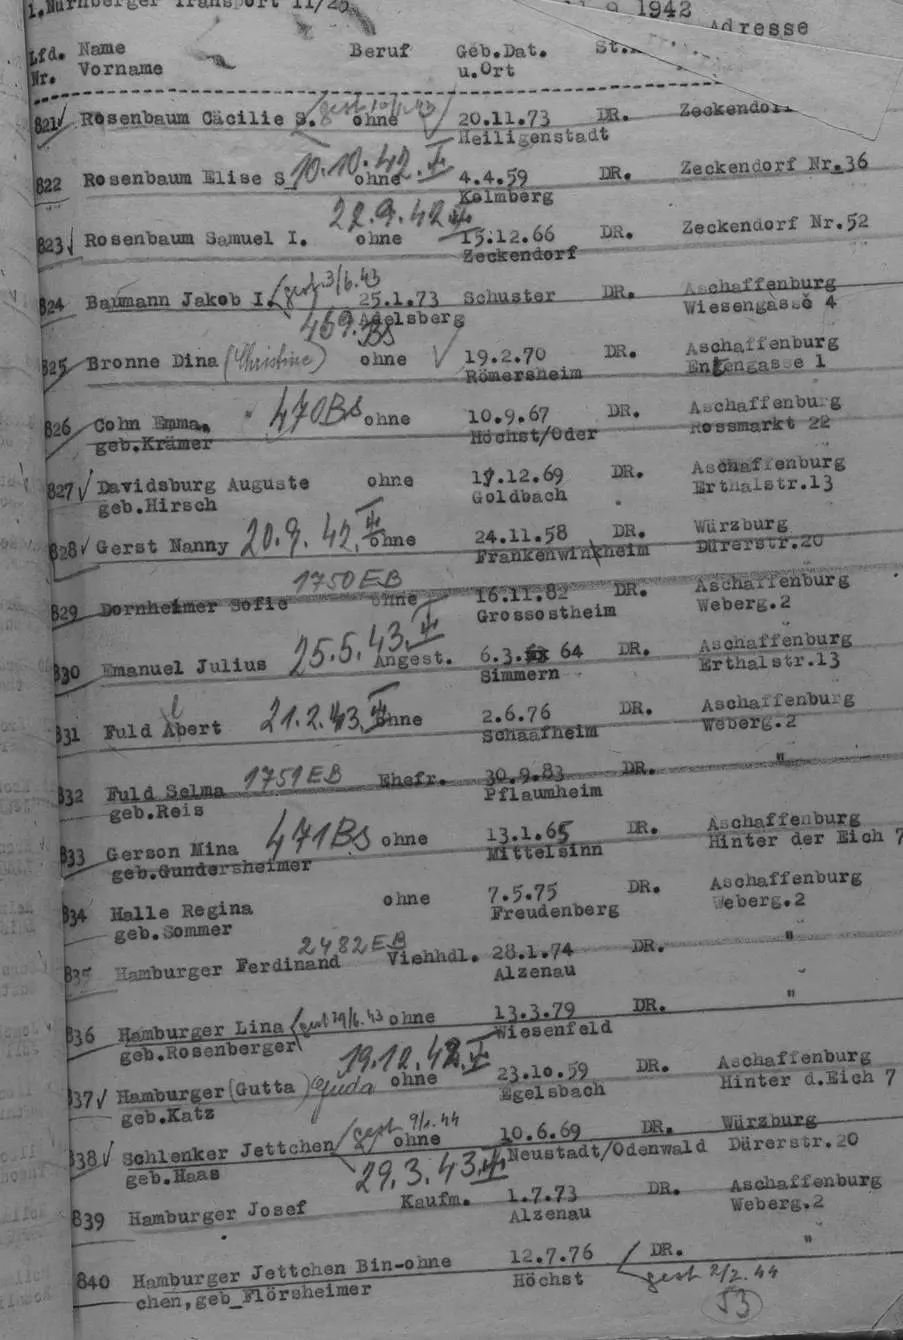 1.Nürnberger Transport II/25
9 1942
Adresse
Lfd. Name Beruf Geb.Dat. St.
Nr. Vorname u.Ort
gest 10/1.43
821 Rosenbaum Cäcilie S. ohne 20.11.73 DR. Zeckendorf
Heiligenstadt
10.10.42.
822 Rosenbaum Elise S ohne 4.4.59 DR. Zeckendorf Nr.36
Kolmberg
22.9.42
823 Rosenbaum Samuel I. ohne 15.12.66 DR. Zeckendorf Nr.52
Zeckendorf
gest. 3/6.43
824 Baumann Jakob I. 25.1.73 Schuster DR. Aschaffenburg
Adelsberg Wiesengasse 4
469.Bs
825 Bronne Dina (Christine) ohne 19.2.70 DR. Aschaffenburg
Römersheim Entengasse 1
826 Cohn Emma, 470Bs ohne 10.9.67 DR. Aschaffenburg
geb.Krämer Höchst/Oder Rossmarkt 22
827 Davidsburg Auguste ohne 17.12.69 DR. Aschaffenburg
geb.Hirsch Goldbach Erthalstr.13
828 Gerst Nanny 20.9.42. ohne 24.11.58 DR. Würzburg
Frankenwinkheim Dürerstr.20
1750EB
829 Dornheimer Sofie ohne 16.11.82 DR. Aschaffenburg
Grossostheim Weberg.2
25.5.43.
830 Emanuel Julius Angest. 6.3. 64 DR. Aschaffenburg
Simmern Erthalstr.13
l
831 Fuld Abert 21.2.43. ohne 2.6.76 DR. Aschaffenburg
Schaafheim Weberg.2
832 Fuld Selma 1751EB Ehefr. 30.9.83 DR. "
geb.Reis Pflaumheim
833 Gerson Mina 471Bs ohne 13.1.65 DR. Aschaffenburg
geb.Gundersheimer Mittelsinn Hinter der Eich 7
834 Halle Regina ohne 7.5.75 DR. Aschaffenburg
geb.Sommer Freudenberg Weberg.2
2482EB
835 Hamburger Ferdinand Viehhdl. 28.1.74 DR. "
Alzenau
836 Hamburger Lina gest 29/6.43 ohne 13.3.79 DR. "
geb.Rosenberger Wiesenfeld
19.12.42.
837 Hamburger (Gutta) Guda ohne 23.10.59 DR. Aschaffenburg
geb.Katz Egelsbach Hinter d.Eich 7
gest 9/1.44
838 Schlenker Jettchen ohne 10.6.69 DR. Würzburg
geb.Haas Neustadt/Odenwald Dürerstr.20
29.3.43.
839 Hamburger Josef Kaufm. 1.7.73 DR. Aschaffenburg
Alzenau Weberg.2
840 Hamburger Jettchen Bin-ohne 12.7.76 DR. "
chen,geb_Flörsheimer Höchst gest 2/2.44
53